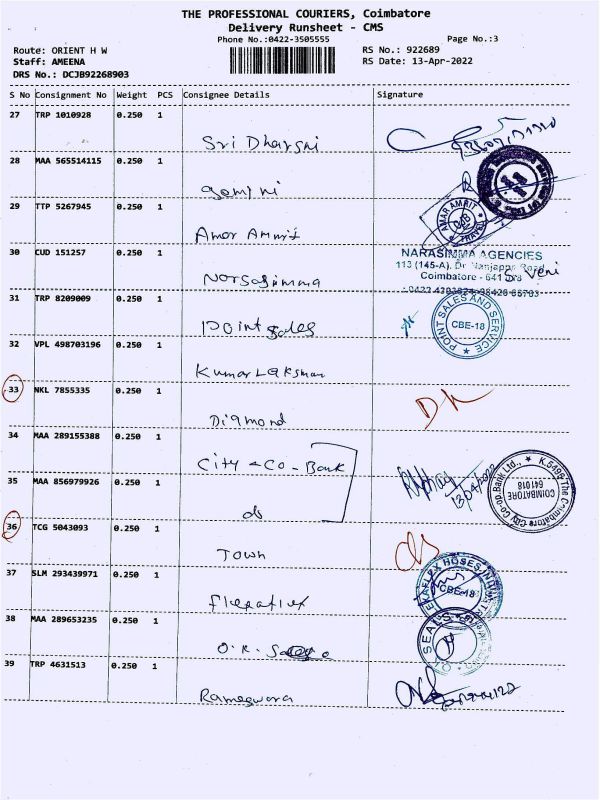 THE PROFESSIONAL COURIERS, Coimbatore
Delivery Runsheet - CMS
Phone No.:0422-3505555
Page No.:3
Route: ORIENT H W
RS No.: 922689
Staff: AMEENA
RS Date: 13-Apr-2022
DRS No.: DCJB92268903
S No Consignment No Weight PCS Consignee Details Signature
27 TRP 1010928 0.250 1
Sri Dharsni
28 MAA 565514115 0.250 1
gemini
29 TTP 5267945 0.250 1
Amar Amrit
AMAR AMRIT
TRAVEL
30 CUD 151257 0.250 1
NARASIMMA AGENCIES
113 (145-A), Dr. Nanjappa Road
Coimbatore - 641 018
S. Veni
Norsasimma
31 TRP 8209009 0.250 1
Point sales
POINT SALES AND SERVICE
CBE-18
32 VPL 498703196 0.250 1
Kumar Laksman
33 NKL 7855335 0.250 1
Diamond
34 MAA 289155388 0.250 1
City & Co-Bank
35 MAA 856979926 0.250 1
do
13/04/2022
K.5499 The Coimbatore City Co-op. Bank Ltd.,
COIMBATORE
641018
36 TCG 5043093 0.250 1
Town
37 SLM 293439971 0.250 1
CBE-18
38 MAA 289653235 0.250 1
OIL SEALS
39 TRP 4631513 0.250 1
Rameswara